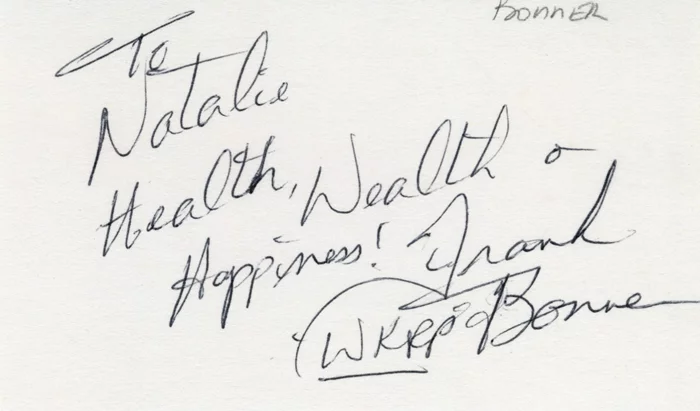 BONNER
To
Natalie
Health, Wealth &
Happiness! Frank
(WKRP) Bonner